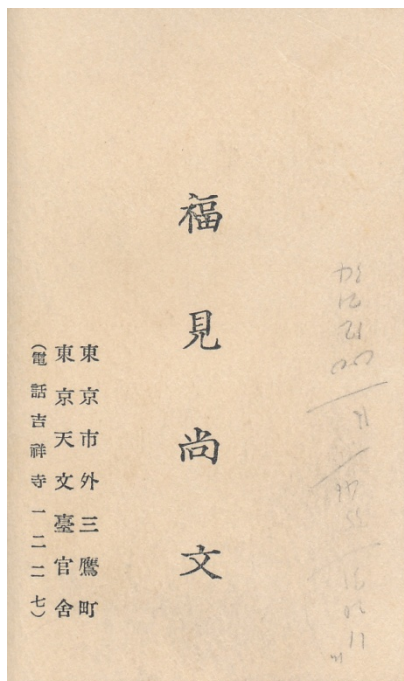 福見尚文
東京市外三鷹町
東京天文臺官舍
(電話吉祥寺一二二七)